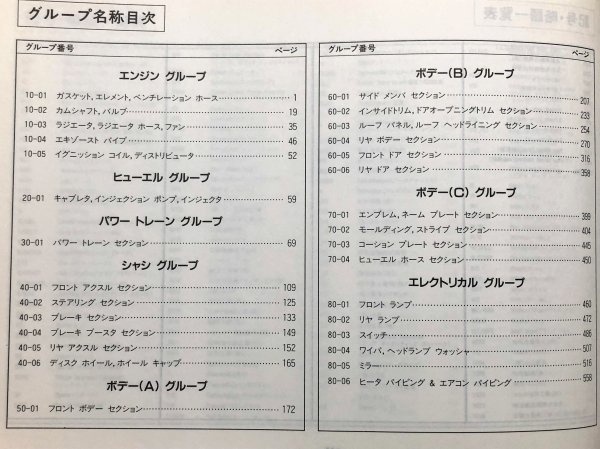 グループ名称目次
グループ番号 ページ
エンジン グループ
10-01 ガスケット,エレメント,ベンチレーション ホース 1
10-02 カムシャフト,バルブ 19
10-03 ラジエータ,ラジエータ ホース,ファン 35
10-04 エキゾースト パイプ 46
10-05 イグニッション コイル,ディストリビュータ 52
ヒューエル グループ
20-01 キャブレタ,インジェクション ポンプ,インジェクタ 59
パワー トレーン グループ
30-01 パワー トレーン セクション 69
シャシ グループ
40-01 フロント アクスル セクション 109
40-02 ステアリング セクション 125
40-03 ブレーキ セクション 133
40-04 ブレーキ ブースタ セクション 149
40-05 リヤ アクスル セクション 152
40-06 ディスク ホイール,ホイール キャップ 165
ボデー(A) グループ
50-01 フロント ボデー セクション 172
グループ番号 ページ
ボデー(B) グループ
60-01 サイド メンバ セクション 207
60-02 インサイドトリム,ドアオープニングトリム セクション 233
60-03 ルーフ パネル,ルーフ ヘッドライニング セクション 254
60-04 リヤ ボデー セクション 270
60-05 フロント ドア セクション 316
60-06 リヤ ドア セクション 358
ボデー(C) グループ
70-01 エンブレム,ネーム プレート セクション 399
70-02 モールディング,ストライプ セクション 404
70-03 コーション プレート セクション 445
70-04 ヒューエル ホース セクション 450
エレクトリカル グループ
80-01 フロント ランプ 460
80-02 リヤ ランプ 472
80-03 スイッチ 486
80-04 ワイパ,ヘッドランプ ウォッシャ 507
80-05 ミラー 516
80-06 ヒータ パイピング & エアコン パイピング 558